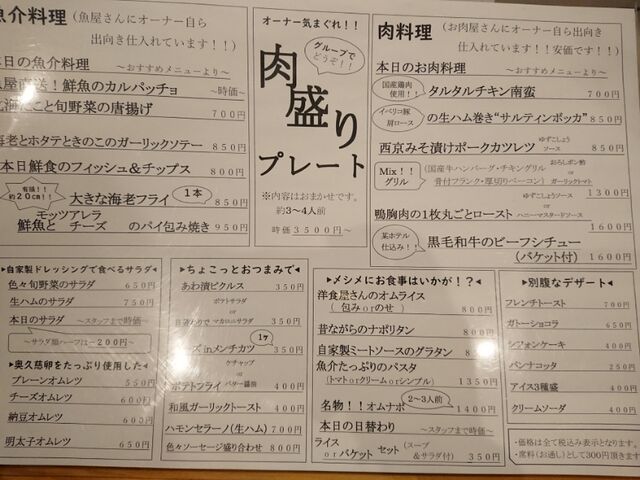 魚介料理(魚屋さんにオーナー自ら
出向き仕入れています!!)
本日の魚介料理
～おすすめメニューより～
鮮魚のカルパッチョ ～時価～
たこと旬野菜の唐揚げ 700円
海老とホタテときのこのガーリックソテー 850円
本日鮮食のフィッシュ&チップス 800円
有頭!!
約20cm!!
大きな海老フライ 1本 850円
モッツアレラ
鮮魚と チーズ のパイ包み焼き 950円
オーナー気まぐれ!!
グループで
どうぞ!!
肉盛り
プレート
※内容はおまかせです。
約3～4人前
時価3500円～
肉料理(お肉屋さんにオーナー自ら出向き
仕入れています!!安価です!!)
本日のお肉料理
～おすすめメニューより～
国産鶏肉
使用!!
タルタルチキン南蛮 700円
イベリコ豚
肩ロース
の生ハム巻き“サルティンボッカ” 850円
西京みそ漬けポークカツレツ ゆずこしょう
ソース 850円
Mix!!
グリル
(国産牛ハンバーグ・チキングリル
骨付フランク・厚切りベーコン)
おろしポン酢
or
ガーリックトマト
1300円
鴨胸肉の1枚丸ごとロースト
ゆずこしょうソース
or
ハニーマスタードソース
1600円
某ホテル
仕込み!!
黒毛和牛のビーフシチュー
(バケット付) 1600円
▶自家製ドレッシングで食べるサラダ◀
色々旬野菜のサラダ 650円
生ハムのサラダ 750円
本日のサラダ ～スタッフまで時価～
～サラダ類ハーフは－200円～
▶奥久慈卵をたっぷり使用した◀
プレーンオムレツ 550円
チーズオムレツ 600円
納豆オムレツ 600円
明太子オムレツ 650円
▶ちょこっとおつまみで◀
あわ漬ピクルス 350円
ポテトサラダ
or
マカロニサラダ 350円
ズinメンチカツ 1ヶ 350円
ポテトフライ
ケチャップ
or
バター醤油
400円
和風ガーリックトースト 400円
ハモンセラーノ(生ハム) 700円
色々ソーセージ盛り合わせ 800円
▶メシメにお食事はいかが!?◀
洋食屋さんのオムライス
(包みorのせ) 800円
昔ながらのナポリタン 800円
自家製ミートソースのグラタン 850円
魚介たっぷりのパスタ
(トマトorクリームorシンプル) 1350円
名物!!オムナポ 2～3人前 1400円
本日の日替わり
～スタッフまで時価～
ライス
orバケット セット (スープ
&サラダ付) 350円
▶別腹なデザート◀
フレンチトースト 700円
ガトーショコラ 650円
シフォンケーキ 400円
パンナコッタ 250円
アイス3種盛 400円
クリームソーダ 400円
・価格は全て税込み表示となります。
・席料(お通し)として300円頂きます